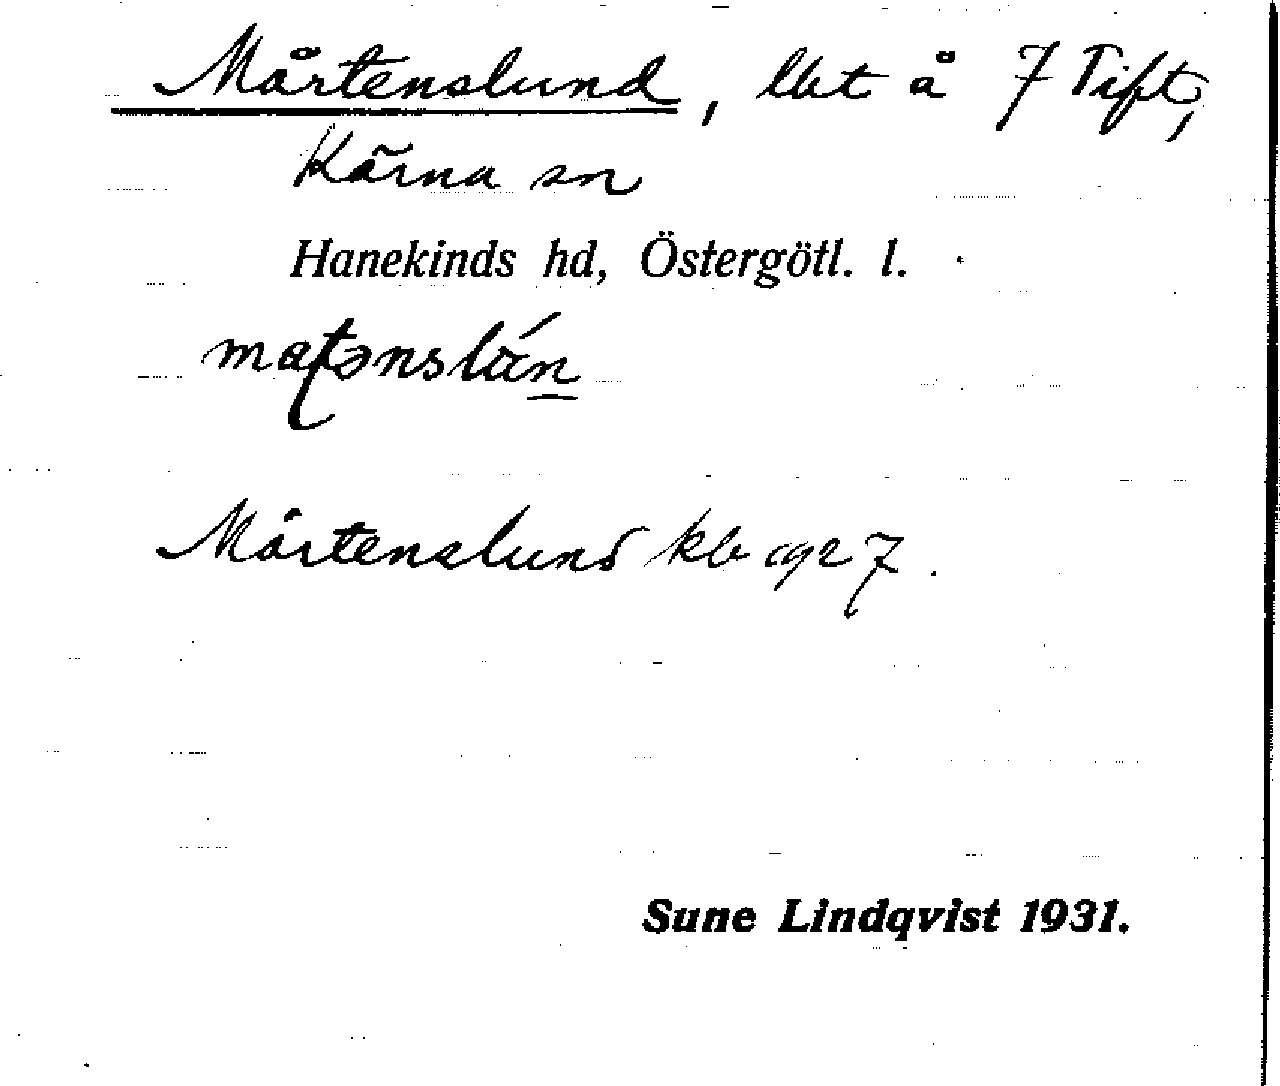 Mårtenslund, lht å 7 Tift,
Kärna sn
Hanekinds hd, Östergötl. l.
Mårtenslund kb 1927.
Sune Lindqvist 1931.